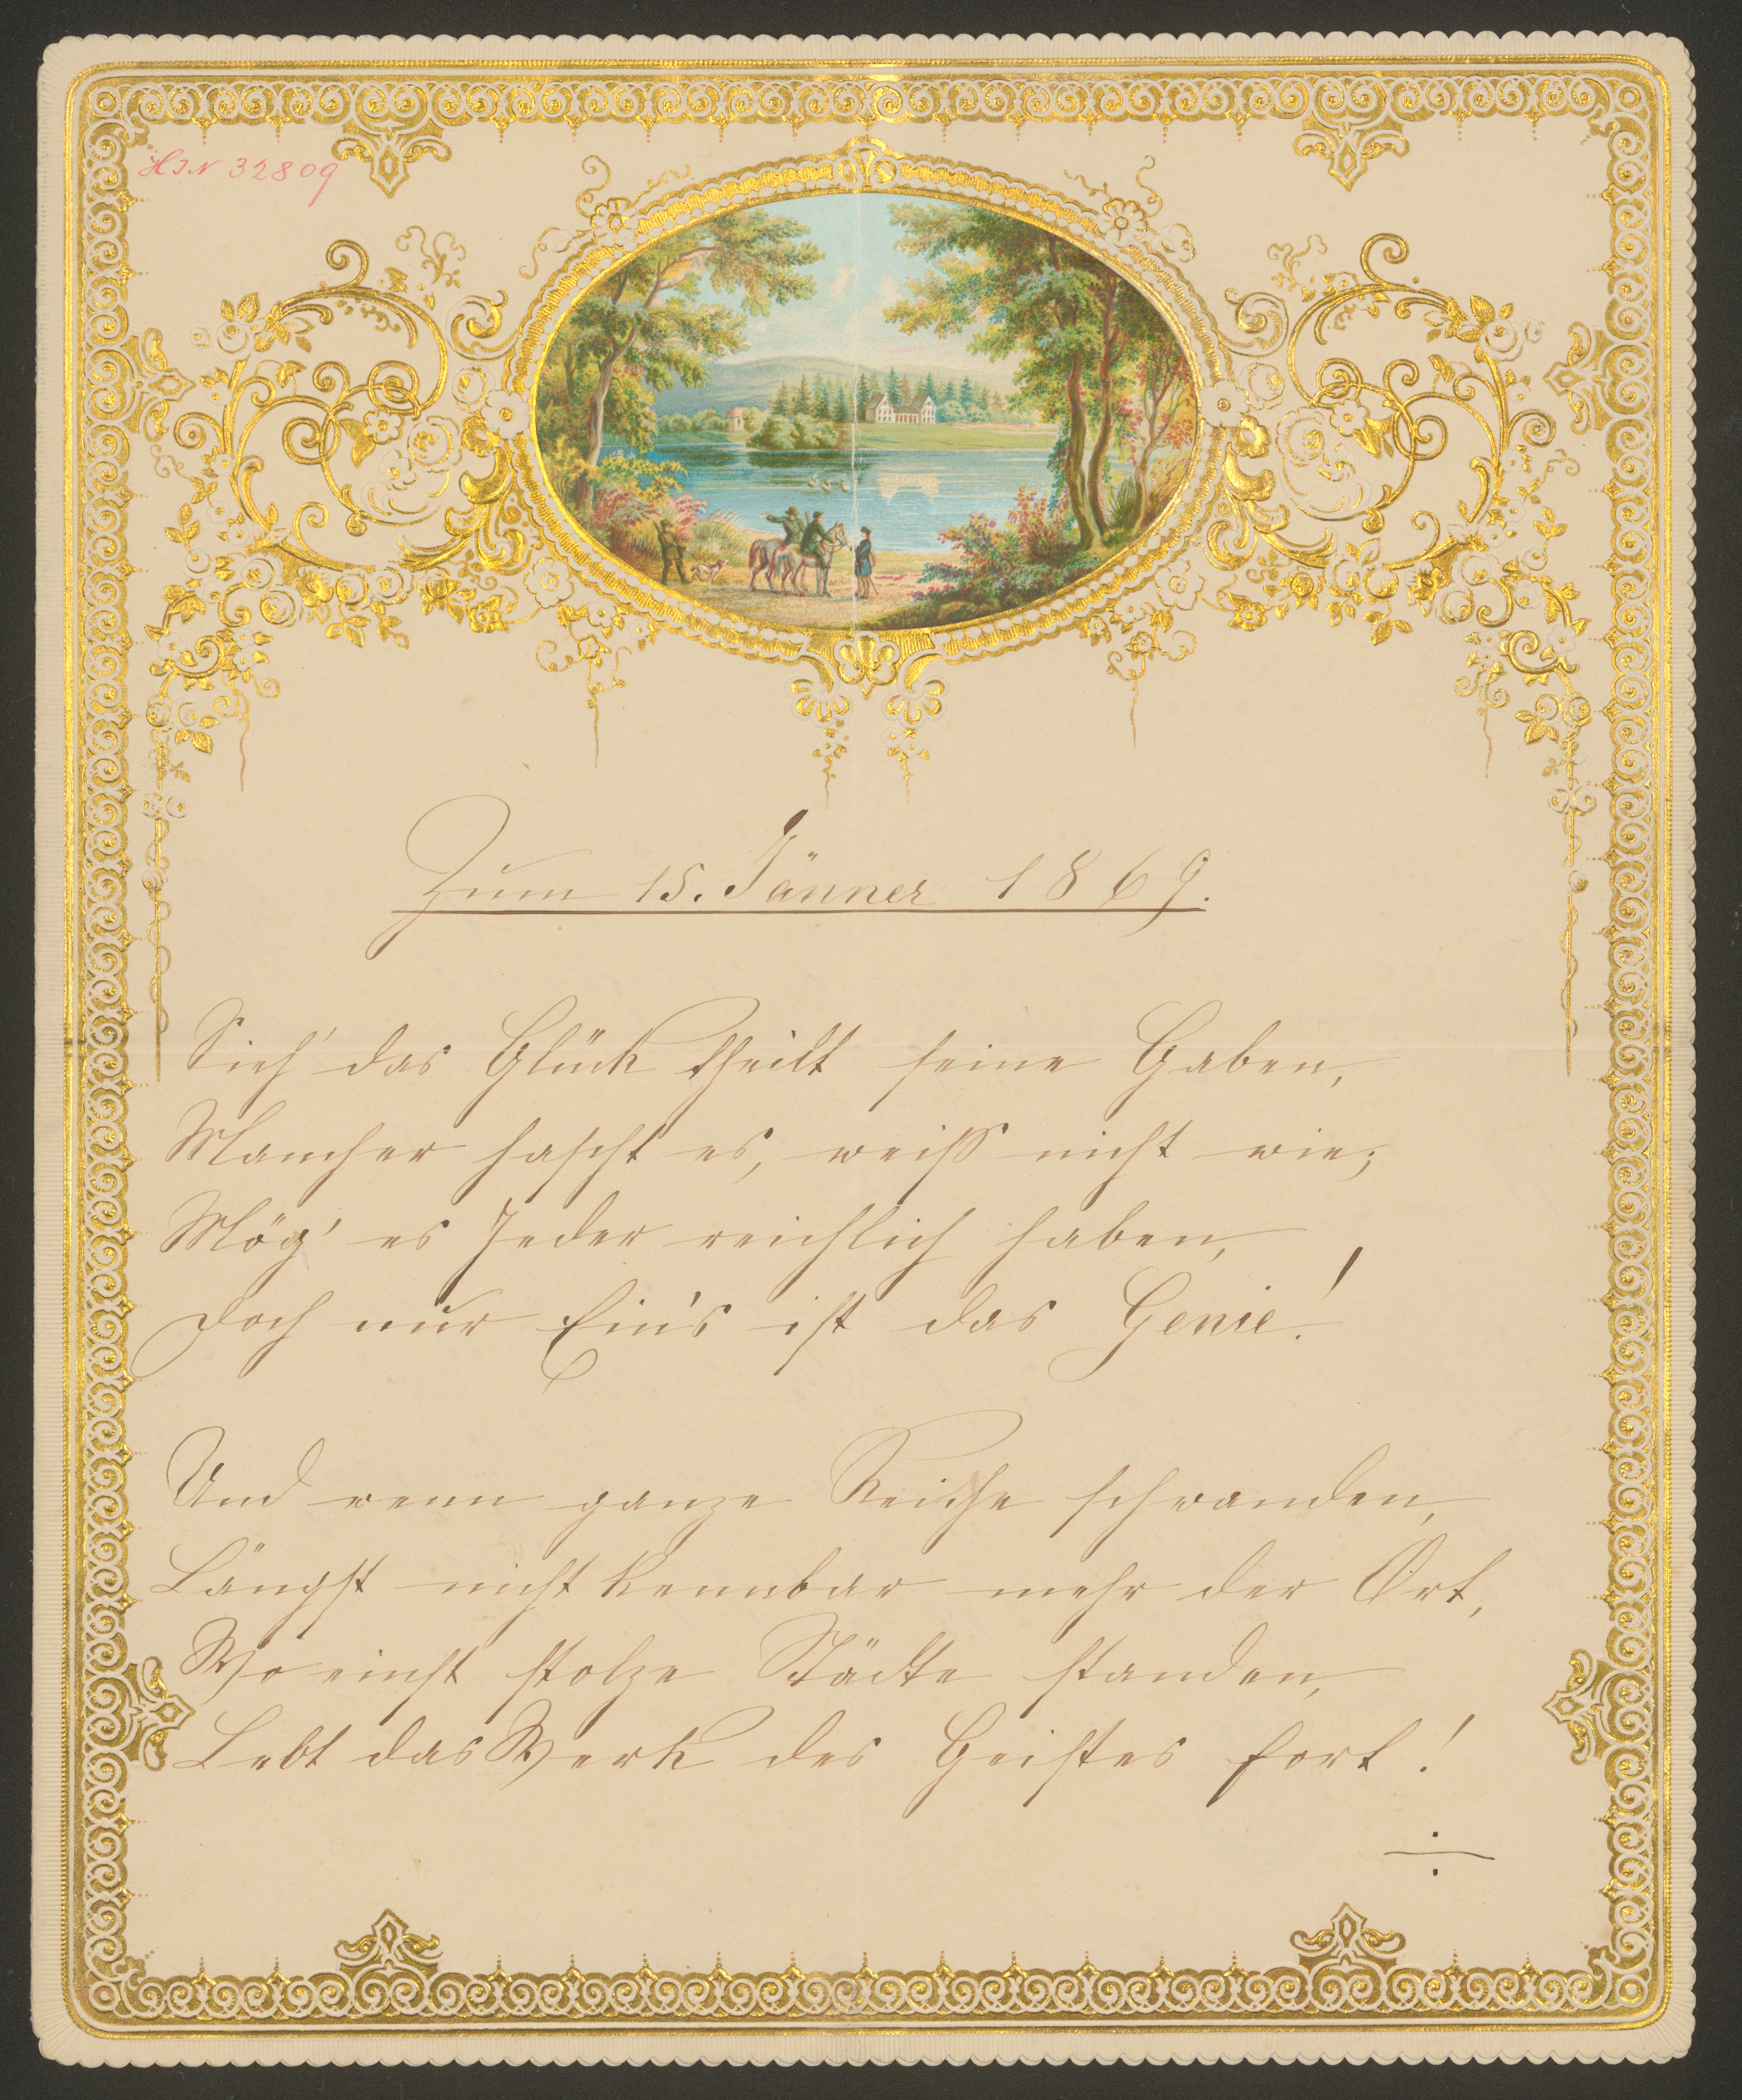 HIN 32809
Zum 15. Jänner 1869.
Sieh' das Glück theilt seine Gaben,
Mancher hascht es, weiß nicht wie;
Mög' es Jeder reichlich haben,
Doch nur Eins ist das Genie!
Und wenn ganze Reiche schwanden,
Längst nicht kennbar mehr der Ort,
Wo einst stolze Städte standen,
Lebt das Werk des Geistes fort!